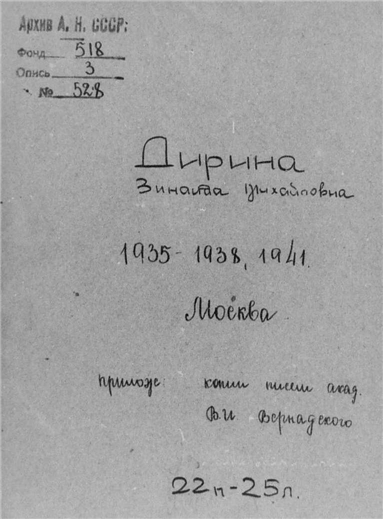 Архив А. Н. СССР:
Фонд 518
Опись 3
№ 528
Дирина
Зинаида Михайловна
1935-1938, 1941.
Москва
прилож: копии писем акад.
В.И Вернадского
22п-25л.